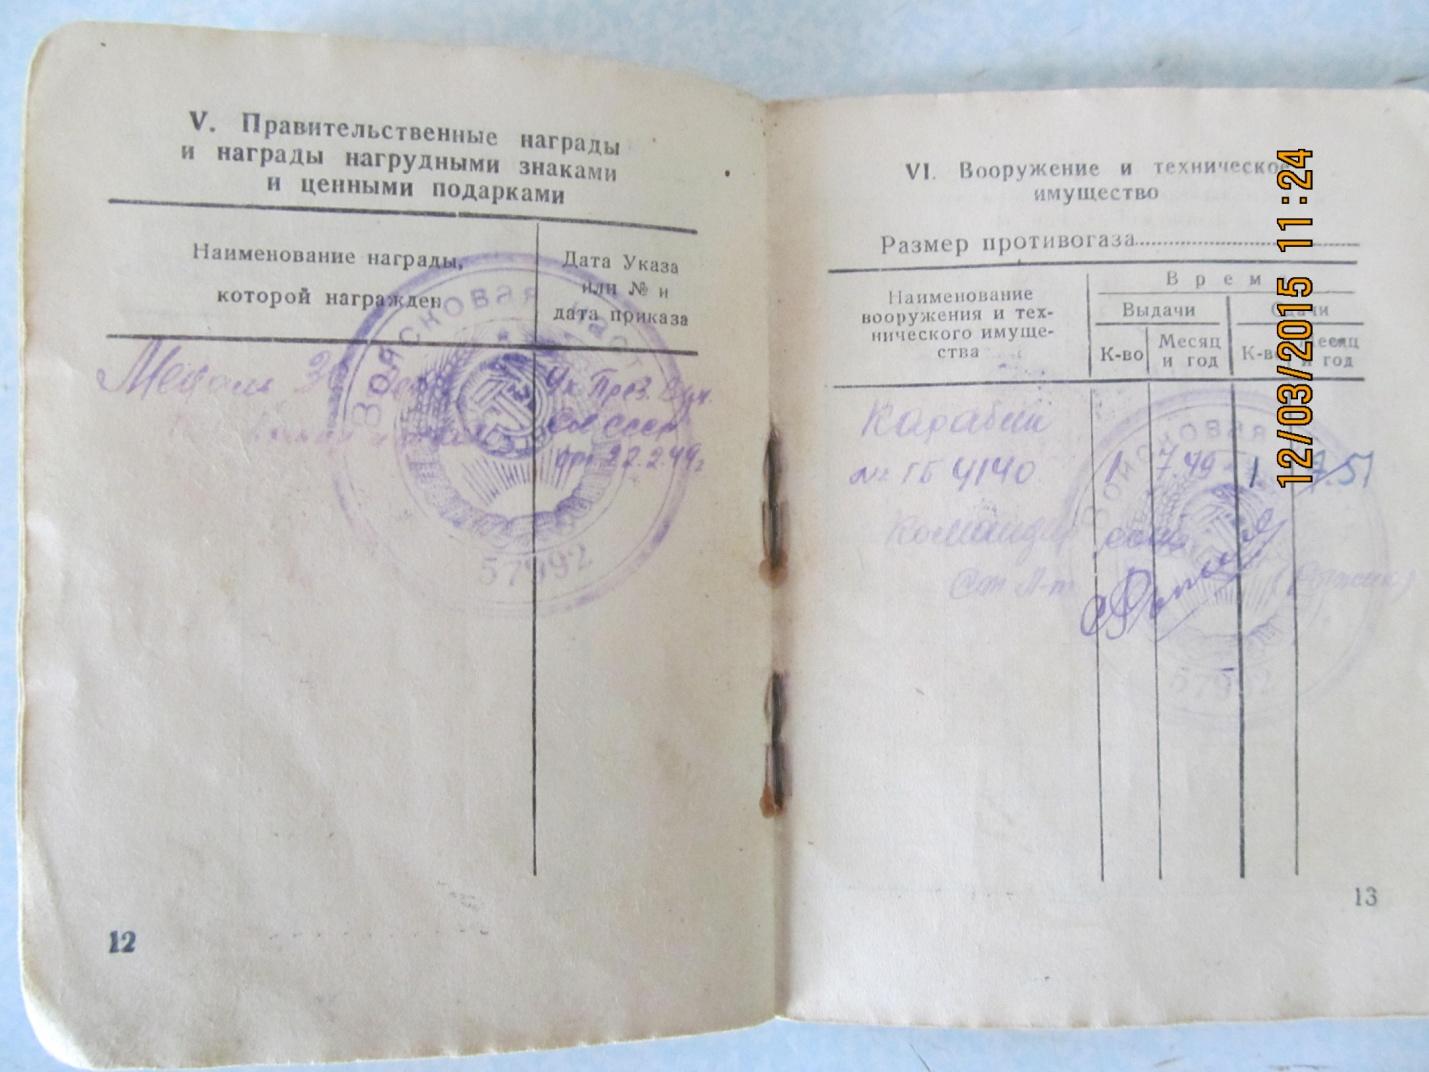 V. Правительственные награды
и награды нагрудными знаками
и ценными подарками
Наименование награды,
которой награжден
Дата Указа
или № и
дата приказа
Медаль 30 лет
Ук. През. Вер.
Сов СССР
от 22.2.48г
ВОЙСКОВАЯ ЧАСТЬ
57992
12
VI. Вооружение и техническое
имущество
Размер противогаза
Наименование
вооружения и тех-
нического имуще-
ства
Время
Выдачи
Сдачи
К-во
Месяц
и год
К-во
Месяц
и год
Карабин
№ ГБ 4140 1 7.49 1 7.51
Командир
Ст Л-т
ВОЙСКОВАЯ
57992
13
12/03/2015 11:24